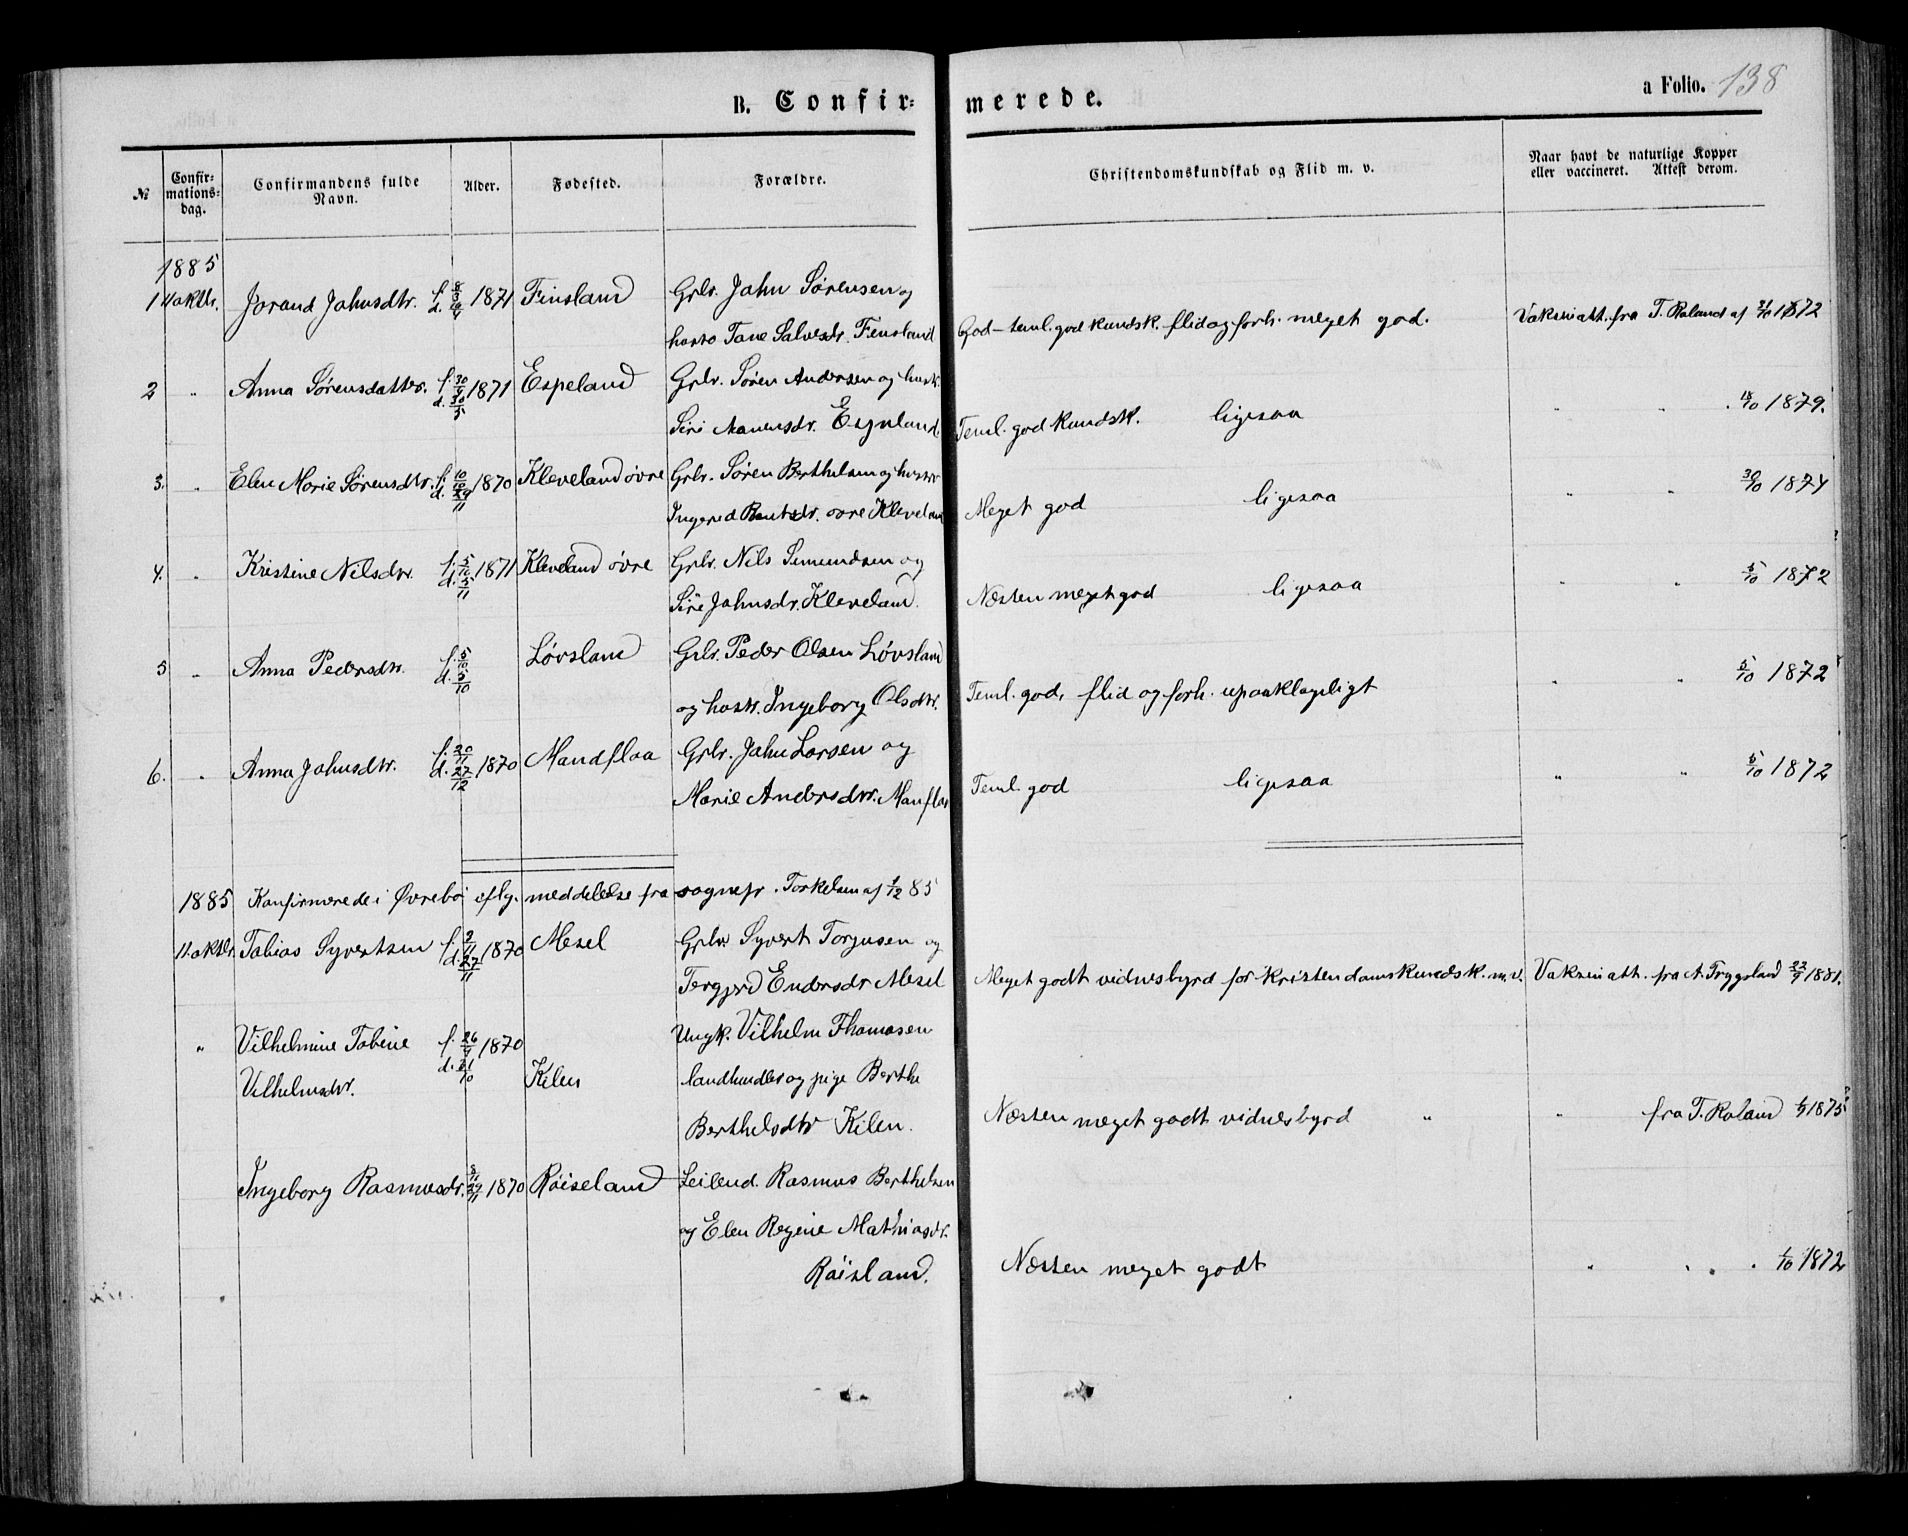 B. Confir= merede. a Folio. 138
№ Confir= mations= dag. Confirmandens fulde Navn. Alder. Fødested. Forældre. Christendomskundskab og Flid m. v. Naar havt de naturlige Kopper eller vaccineret. Attest derom.
1885
1 11 oktbr. Jorand Jahnsdtr. f. 8/3 d. /4 1871 Finsland Grbr. Jahn Sørensen og
hustr Tane Salvesdr. Finsland God - teml. god kundsk. flid og forh. meget god. Vaksinatt. fra T. Roland af /10 1872
2 „ Anna Sørensdatter. f. 30/4 d. 30/5 1871 Espeland Grbr. Søren Andersen og hustr.
Siri Aanensdr. Espeland Teml. god kundsk. ligesaa „ „ . 18/10 1879.
3. „ Elen Marie Sørensdtr. f. 10/10 d. 29/11 1870 Kleveland øvre Grbr. Søren Berthelsen og hustr
Ingered Bentsdr. øvre Kleveland Meget god ligesaa „ „ 30/10 1874
4. „ Kristine Nilsdtr. f. 5/10 d. 5/11 1871 Kleveland øvre Grbr. Nils Simundsen og
Siri Jahnsdr. Kleveland. Næsten meget god ligesaa „ „ 5/10 1872
5 „ Anna Pedersdtr. f. 5/10 d. 5/10 Løvsland Grbr. Peder Olsen Løvsland
og hustr. Ingeborg Olsdtr. Teml. god, flid og forh. upaaklageligt „ „ 5/10 1872
6. „ Anna Jahnsdtr. f. 20/11 d. 27/12 1870 Mandflaa Grbr. Jahn Larsen og
Marie Andersdtr. Manflaa Teml. god ligesaa „ „ 5/10 1872
1885 Konfirmerede i Øvrebø iflg. meddelelse fra sognepr. Torkelsen af 1/12 85
11. oktbr. Tobias Syvertsen f. 2/11 d. 27/11 1870 Mesel Grbr Syvert Torjusen og
Tergjerd Endersdr Mesel Meget godt vidnesbyrd for kristendomskundsk. m. v. Vaksinatt. fra A. Tryggsland 22/9 1881.
„ Vilhelmine Tobine f. 26/9 1870 Ungk. Vilhelm Thomasen
Vilhelmsdtr. d. 21/10 Kilen landhandler og pige Berthe
Berthelsdtr Kilen. Næsten meget godt vidnesbyrd „ „ fra T. Roland 1/9 1875
Ingeborg Rasmusdr. /11 29/11 1870 Røiseland Leilend. Rasmus Berthelsen
og Elen Regine Mathiasdr.
Røisland. Næsten meget godt „ . . 1/10 1872